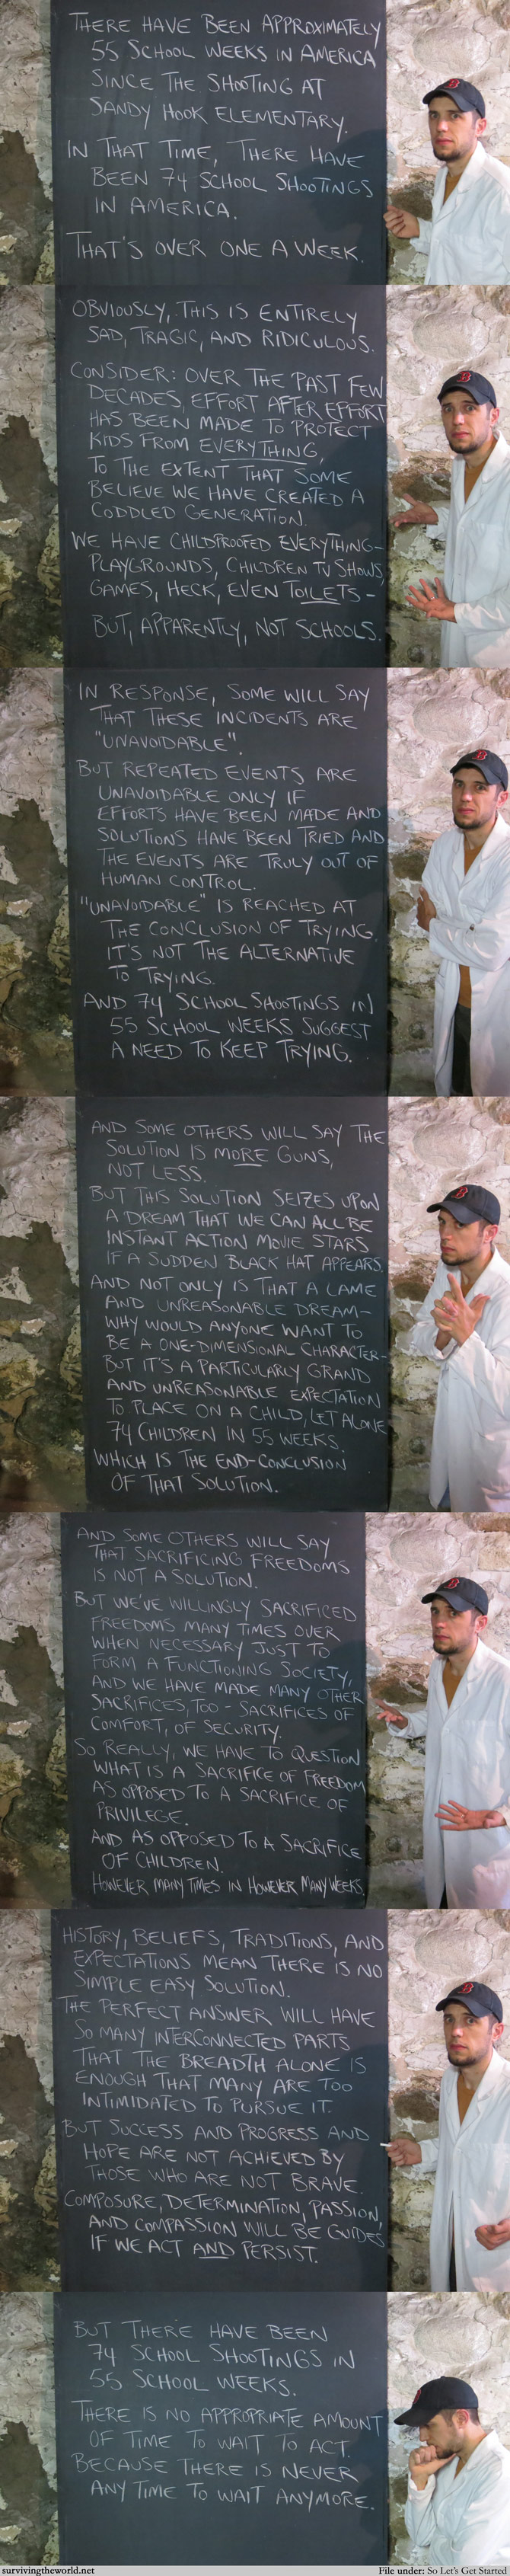 THERE HAVE BEEN APPROXIMATELY
55 SCHOOL WEEKS IN AMERICA
SINCE THE SHOOTING AT
SANDY HOOK ELEMENTARY.
IN THAT TIME, THERE HAVE
BEEN 74 SCHOOL SHOOTINGS
IN AMERICA.
THAT'S OVER ONE A WEEK.
OBVIOUSLY, THIS IS ENTIRELY
SAD, TRAGIC, AND RIDICULOUS.
CONSIDER: OVER THE PAST FEW
DECADES, EFFORT AFTER EFFORT
HAS BEEN MADE TO PROTECT
KIDS FROM EVERYTHING,
TO THE EXTENT THAT SOME
BELIEVE WE HAVE CREATED A
CODDLED GENERATION.
WE HAVE CHILDPROOFED EVERYTHING-
PLAYGROUNDS, CHILDREN TV SHOWS,
GAMES, HECK, EVEN TOILETS -
BUT, APPARENTLY, NOT SCHOOLS.
IN RESPONSE, SOME WILL SAY
THAT THESE INCIDENTS ARE
"UNAVOIDABLE".
BUT REPEATED EVENTS ARE
UNAVOIDABLE ONLY IF
EFFORTS HAVE BEEN MADE AND
SOLUTIONS HAVE BEEN TRIED AND
THE EVENTS ARE TRULY OUT OF
HUMAN CONTROL.
"UNAVOIDABLE" IS REACHED AT
THE CONCLUSION OF TRYING.
IT'S NOT THE ALTERNATIVE
TO TRYING.
AND 74 SCHOOL SHOOTINGS IN
55 SCHOOL WEEKS SUGGEST
A NEED TO KEEP TRYING.
AND SOME OTHERS WILL SAY THE
SOLUTION IS MORE GUNS,
NOT LESS.
BUT THIS SOLUTION SEIZES UPON
A DREAM THAT WE CAN ALL BE
INSTANT ACTION MOVIE STARS
IF A SUDDEN BLACK HAT APPEARS.
AND NOT ONLY IS THAT A LAME
AND UNREASONABLE DREAM-
WHY WOULD ANYONE WANT TO
BE A ONE-DIMENSIONAL CHARACTER-
BUT IT'S A PARTICULARLY GRAND
AND UNREASONABLE EXPECTATION
TO PLACE ON A CHILD, LET ALONE
74 CHILDREN IN 55 WEEKS.
WHICH IS THE END-CONCLUSION
OF THAT SOLUTION.
AND SOME OTHERS WILL SAY
THAT SACRIFICING FREEDOMS
IS NOT A SOLUTION.
BUT WE'VE WILLINGLY SACRIFICED
FREEDOMS MANY TIMES OVER
WHEN NECESSARY JUST TO
FORM A FUNCTIONING SOCIETY,
AND WE HAVE MADE MANY OTHER
SACRIFICES, TOO - SACRIFICES OF
COMFORT, OF SECURITY.
SO REALLY, WE HAVE TO QUESTION
WHAT IS A SACRIFICE OF FREEDOM
AS OPPOSED TO A SACRIFICE OF
PRIVILEGE.
AND AS OPPOSED TO A SACRIFICE
OF CHILDREN.
HOWEVER MANY TIMES IN HOWEVER MANY WEEKS.
HISTORY, BELIEFS, TRADITIONS, AND
EXPECTATIONS MEAN THERE IS NO
SIMPLE EASY SOLUTION.
THE PERFECT ANSWER WILL HAVE
SO MANY INTERCONNECTED PARTS
THAT THE BREADTH ALONE IS
ENOUGH THAT MANY ARE TOO
INTIMIDATED TO PURSUE IT.
BUT SUCCESS AND PROGRESS AND
HOPE ARE NOT ACHIEVED BY
THOSE WHO ARE NOT BRAVE.
COMPOSURE, DETERMINATION, PASSION,
AND COMPASSION WILL BE GUIDES
IF WE ACT AND PERSIST.
BUT THERE HAVE BEEN
74 SCHOOL SHOOTINGS IN
55 SCHOOL WEEKS.
THERE IS NO APPROPRIATE AMOUNT
OF TIME TO WAIT TO ACT.
BECAUSE THERE IS NEVER
ANY TIME TO WAIT ANYMORE.
survivingtheworld.net
File under: So Let's Get Started